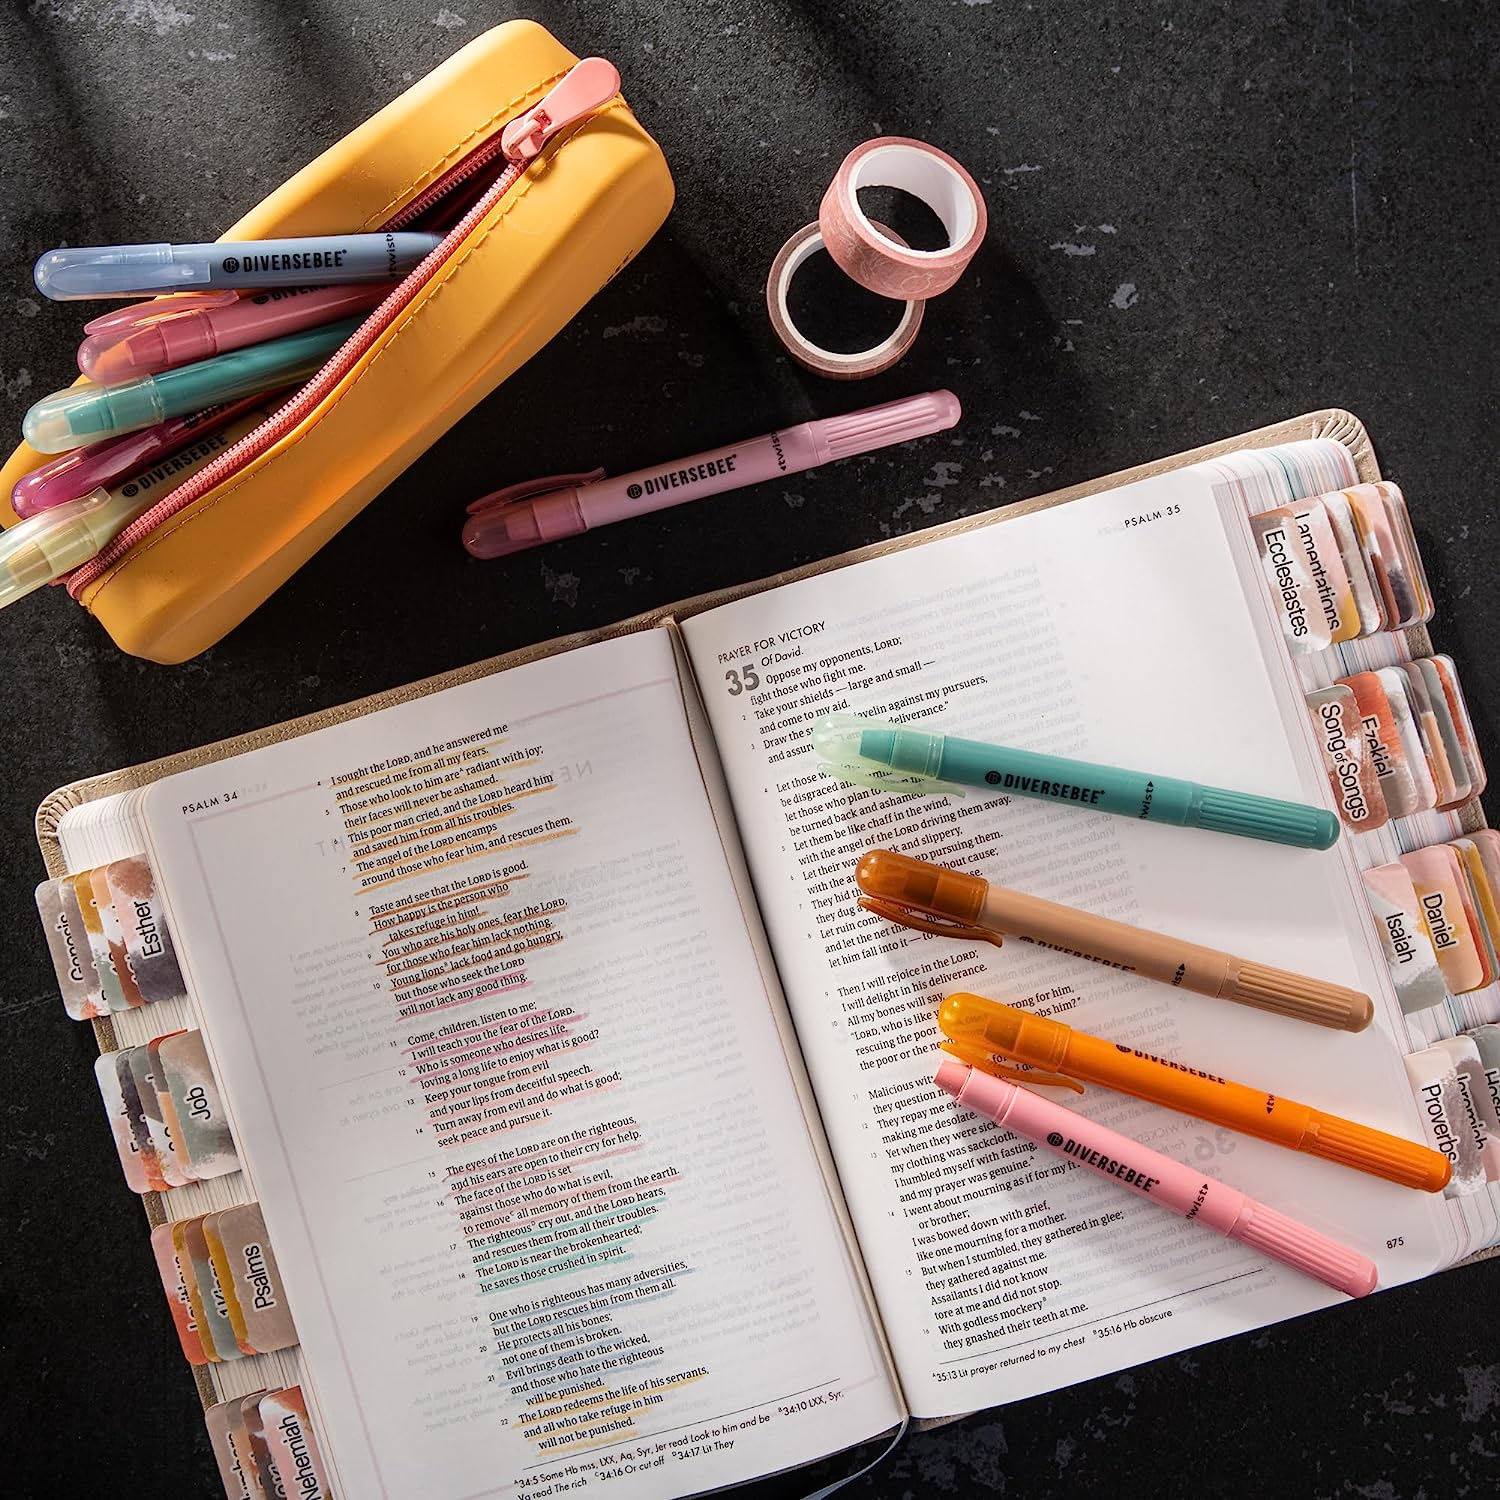 DIVERSEBEE
twist
DIVERSEBEE
DIVERSEBEE
twist
PSALM 34
4 I sought the LORD, and he answered me
and rescued me from all my fears.
5 Those who look to him are^A radiant with joy;
their faces will never be ashamed.
6 This poor man cried, and the LORD heard him
and saved him from all his troubles.
7 The angel of the LORD encamps
around those who fear him, and rescues them.
8 Taste and see that the LORD is good.
How happy is the person who
takes refuge in him!
9 You who are his holy ones, fear the LORD,
for those who fear him lack nothing.
10 Young lions^B lack food and go hungry,
but those who seek the LORD
will not lack any good thing.
11 Come, children, listen to me;
I will teach you the fear of the LORD.
12 Who is someone who desires life,
loving a long life to enjoy what is good?
13 Keep your tongue from evil
and your lips from deceitful speech.
14 Turn away from evil and do what is good;
seek peace and pursue it.
15 The eyes of the LORD are on the righteous,
and his ears are open to their cry for help.
16 The face of the LORD is set
against those who do what is evil,
to remove^C all memory of them from the earth.
17 The righteous^D cry out, and the LORD hears,
and rescues them from all their troubles.
18 The LORD is near the brokenhearted;
he saves those crushed in spirit.
19 One who is righteous has many adversities,
but the LORD rescues him from them all.
20 He protects all his bones;
not one of them is broken.
21 Evil brings death to the wicked,
and those who hate the righteous
will be punished.
22 The LORD redeems the life of his servants,
and all who take refuge in him
will not be punished.
^A34:5 Some Hb mss, LXX, Aq, Syr, Jer read Look to him and be ^B34:10 LXX, Syr,
Vg read The rich ^C34:16 Or cut off ^D34:17 Lit They
PSALM 35
PRAYER FOR VICTORY
35 Of David.
Oppose my opponents, LORD;
fight those who fight me.
2 Take your shields — large and small —
and come to my aid.
3 Draw the javelin against my pursuers,
and assure deliverance."
4 Let those
be disgraced and
let those who plan
be turned back and ashamed.
5 Let them be like chaff in the wind,
with the angel of the LORD driving them away.
6 Let their way dark and slippery,
with the LORD pursuing them.
7 They hid without cause;
they dug a
8 Let ruin come
and let the net
let him fall into it — to
9 Then I will rejoice in the LORD;
I will delight in his deliverance.
10 All my bones will say,
"LORD, who is like strong for him,
rescuing the poor robs him?"
the poor or the
11 Malicious
they question
12 They repay me
making me desolate.
13 Yet when they were sick,
my clothing was sackcloth;
I humbled myself with fasting,
and my prayer was genuine.^A
14 I went about mourning as if for my
or brother;
I was bowed down with grief,
like one mourning for a mother.
15 But when I stumbled, they gathered in glee;
they gathered against me.
Assailants I did not know
tore at me and did not stop.
16 With godless mockery^B
they gnashed their teeth at me.
^A35:13 Lit prayer returned to my chest ^B35:16 Hb obscure
875
DIVERSEBEE
twist
DIVERSEBEE
DIVERSEBEE
twist
DIVERSEBEE
twist
Esther
Job
Psalms
Nehemiah
Lamentations
Ecclesiastes
Ezekiel
Song of Songs
Daniel
Isaiah
Jeremiah
Proverbs